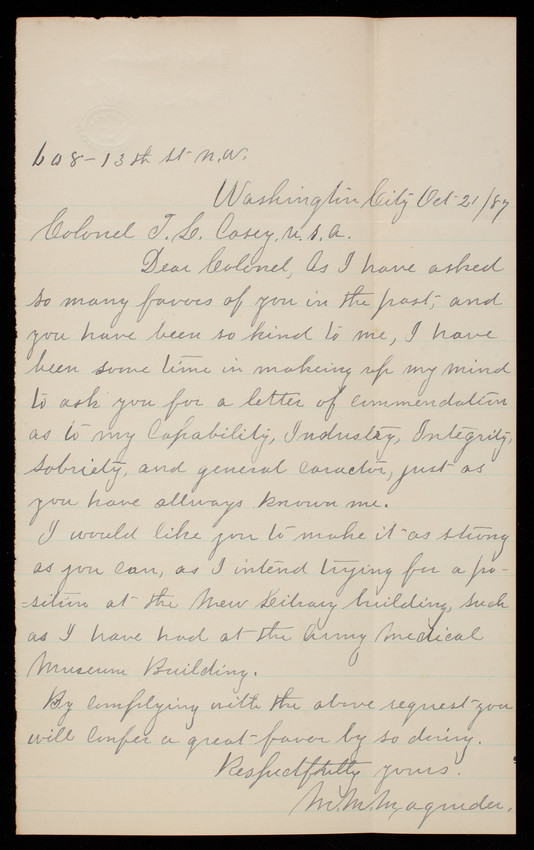 608-13th st N.W.
Washington City Oct 21/87
Colonel T. L. Casey, U.S.A.
Dear Colonel, As I have asked
so many favors of you in the past, and
you have been so kind to me, I have
been some time in makeing up my mind
to ask you for a letter of commendation
as to my Capability, Industry, Integrity,
Sobriety, and general caractor, just as
you have allways known me.
I would like you to make it as strong
as you can, as I intend trying for a po-
-sition at the New Library building, such
as I have had at the Army Medical
Museum Building.
By complying with the above request you
will confer a great favor by so doing.
Respectfully yours.
M. M. Magruder.